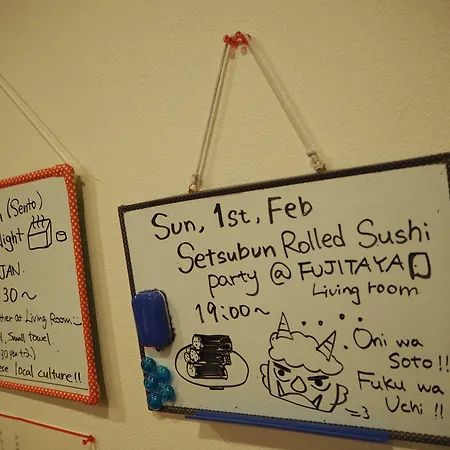 (Sento)
JAN
30~
at Living Room
Small towel
local culture!!
Sun, 1st, Feb
Setsubun Rolled Sushi
party @ FUJITAYA
Living room
19:00~
Oni wa
Soto!!
Fuku wa
Uchi!!